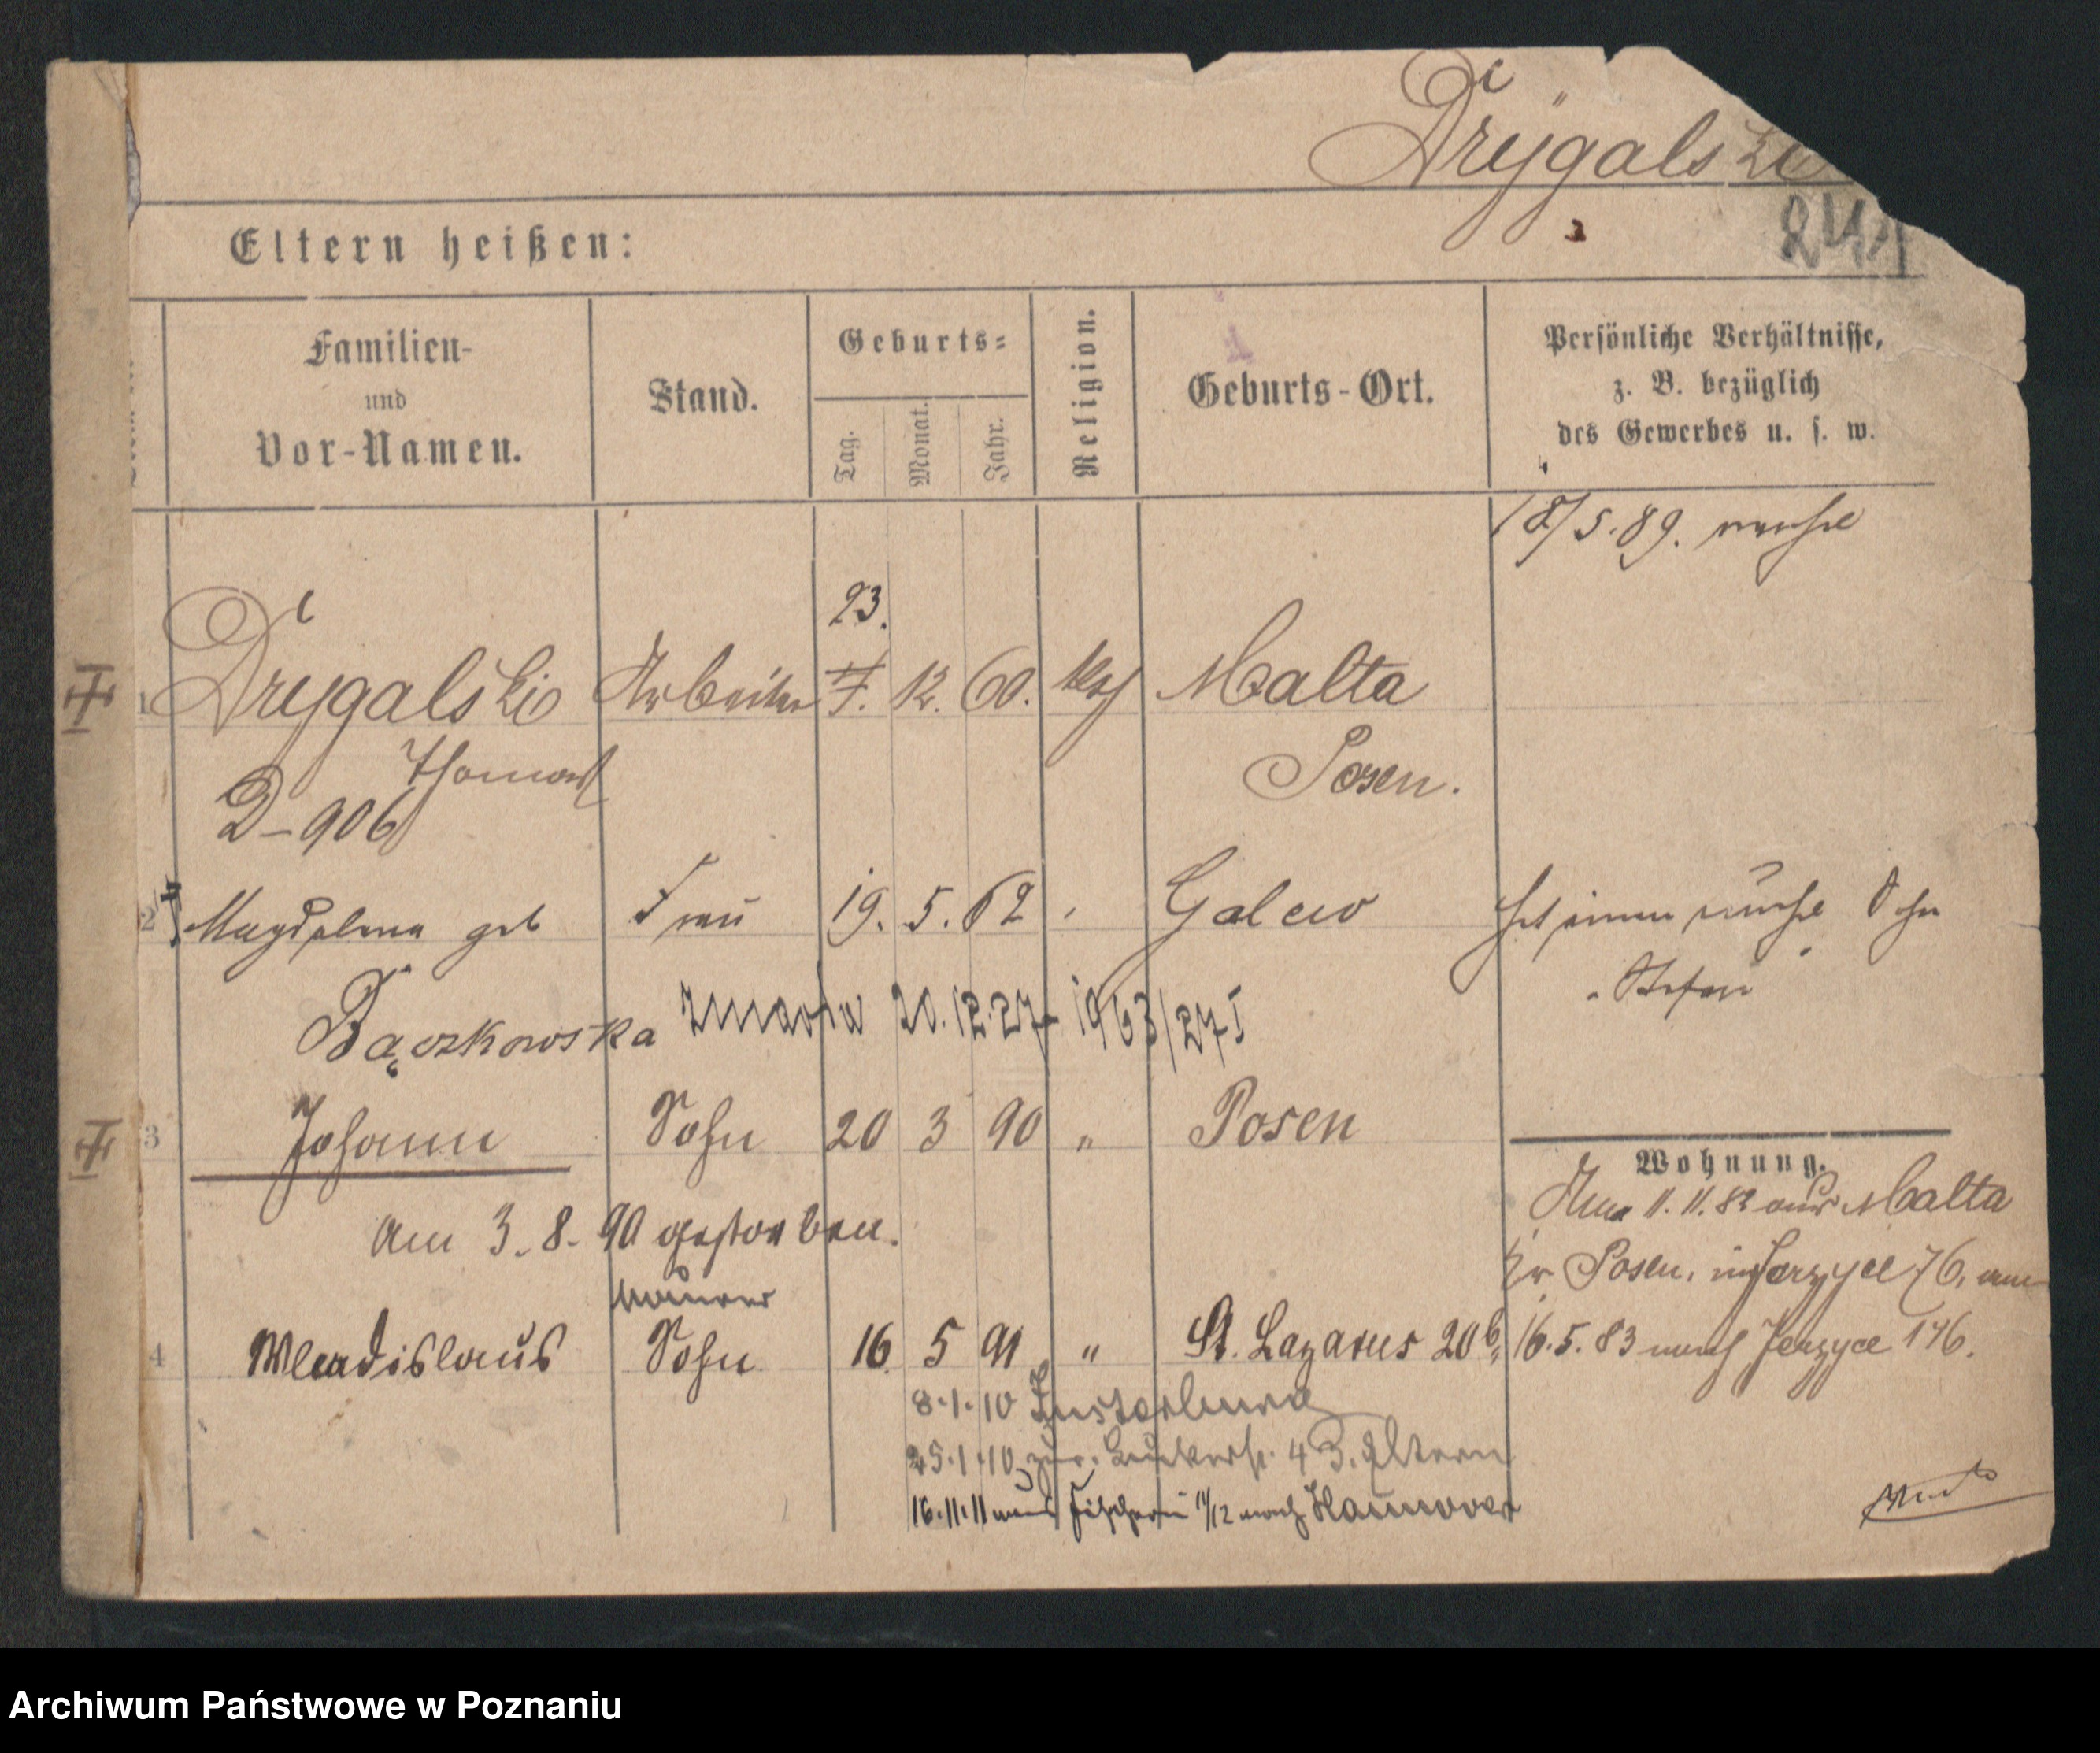 Drygalski
241
Eltern heißen:
Familien-
und
Vor-Namen.
Stand.
Geburts-
Tag.
Monat.
Jahr.
Religion.
Geburts-Ort.
Persönliche Verhältnisse,
z. B. bezüglich
des Gewerbes u. s. w.
18/5.89.
23.
1 Drygalski Arbeiter 7. 12. 60. kath Malta
Thomas Posen.
D-906
2 Magdalena geb Frau 19. 5. 62 Galewo
Stefan
Bączkowska zmarła 20.12.27 1963/27 I
3 Johann Sohn 20 3 90 " Posen
Wohnung.
11.11.82 aus Malta
am 3.8.90 gestorben.
Kr Posen, in Jerzyce 76, am
Maurer
4 Wladislaus Sohn 16 5 91 " St. Lazarus 20b
16.5.83 nach Jerzyce 146.
8.1.10 Insterburg
25.1.10 zur. 43. Eltern
16.11.11 aus 11/12 nach Hannover
Archiwum Państwowe w Poznaniu